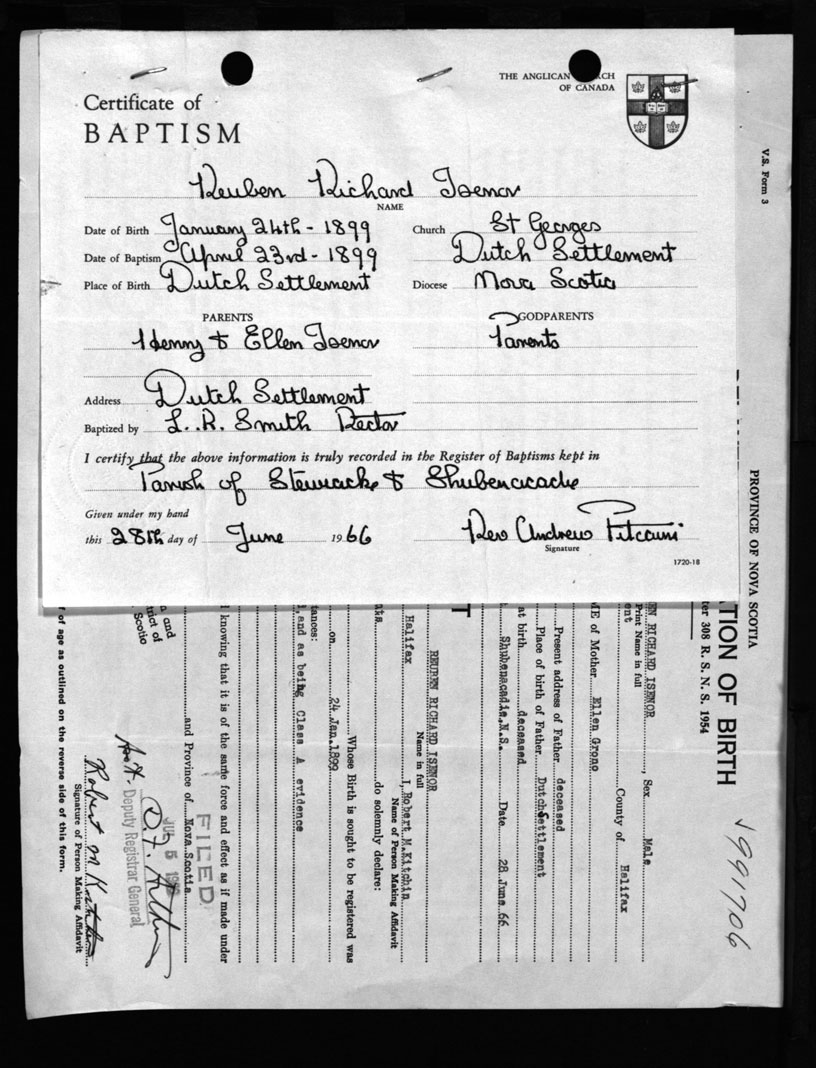 THE ANGLICAN CHURCH
OF CANADA
Certificate of
BAPTISM
Reuben Richard Isenor
NAME
Date of Birth January 24th - 1899
Church St Georges
Date of Baptism April 23rd - 1899
Dutch Settlement
Place of Birth Dutch Settlement
Diocese Nova Scotia
PARENTS
GODPARENTS
Henry & Ellen Isenor
Parents
Address Dutch Settlement
Baptized by L. R. Smith Rector
I certify that the above information is truly recorded in the Register of Baptisms kept in
Parish of Stewiacke & Shubenacadie
Given under my hand
this 28th day of June 1966
Rev Andrew Pitcairn
Signature
1720-18
V.S. Form 3
PROVINCE OF NOVA SCOTIA
TION OF BIRTH
ter 308 R. S. N. S. 1954
1991706
EN RICHARD ISENOR, Sex Male
Print Name in full
ent County of Halifax
ME of Mother Ellen Grono
Present address of Father deceased
Place of birth of Father Dutch Settlement
at birth deceased
Shubenacadie, N.S. Date 28 June 66
T
REUBEN RICHARD ISENOR
Name in full
Halifax I, Robert M. Kitchin
Name of Person Making Affidavit
do solemnly declare:
Whose Birth is sought to be registered was
on 24 Jan. 1899
tances:
, and as being Class A evidence
knowing that it is of the same force and effect as if made under
and Province of Nova Scotia
a and
trict of
Scotio
FILED
JUL 5
Deputy Registrar General
Robert M Kitchin
Signature of Person Making Affidavit
f of age as outlined on the reverse side of this form.